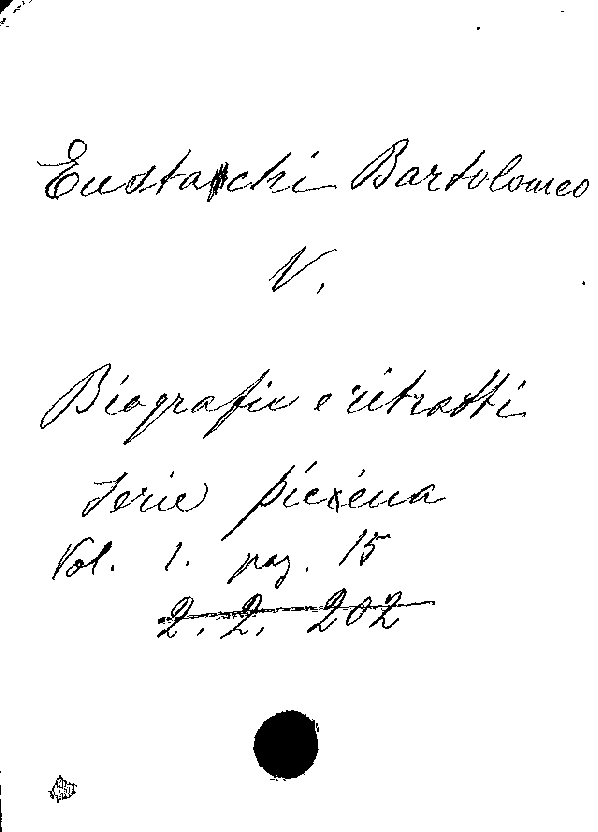 Eustachi Bartolomeo
V.
Biografie e ritratti
Serie picena
Vol. 1. pag. 15
2. 2. 202